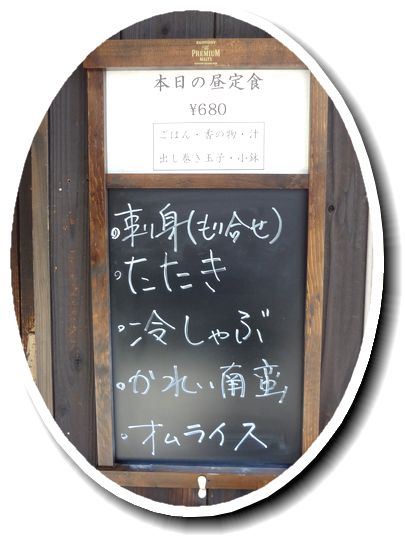 SUNTORY
THE
PREMIUM
MALT'S
本日の昼定食
¥680
ごはん・香の物・汁
出し巻き玉子・小鉢
・刺身(もり合せ)
・たたき
・冷しゃぶ
・かれい南蛮
・オムライス